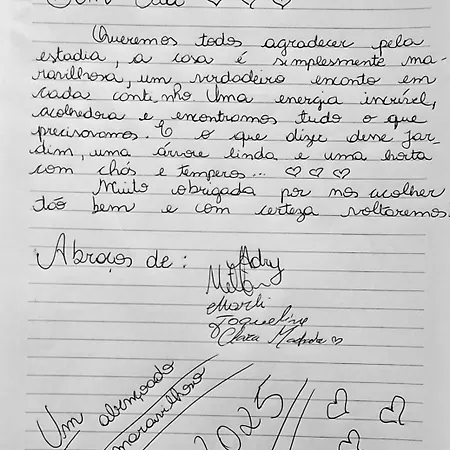 Queremos todos agradecer pela
estadia, a casa é simplesmente ma-
ravilhosa, um verdadeiro encanto em
cada cantinho. Uma energia incrível,
acolhedora e encontramos tudo o que
precisavamos. E o que dizer desse jar-
dim, uma árvore linda e uma horta
com chás e temperos... ♡ ♡ ♡
Muito obrigada por nos acolher
tão bem e com certeza voltaremos.
Abraços de: Adry
Marli
Jaqueline
Clara ♡
Um abençoado
maravilhoso
2025